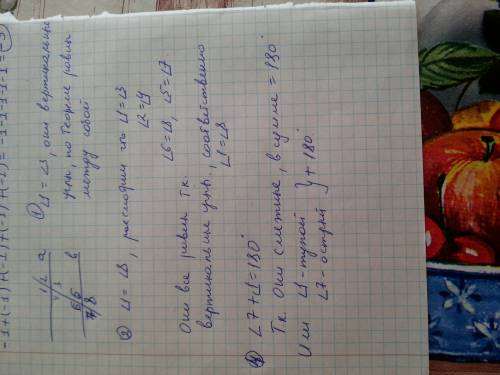 -1+(-1)+(-1)+(-1)+(-1)= -1-1-1-1-1=(-5)
1/2 a
4/3
6/5 b
7/8
① ∠1=∠3, они вертикальные
углы, по теореме равны
между собой
② ∠1=∠8, рассмотрим что ∠1=∠3
∠2=∠4
∠6=∠8, ∠5=∠7
Они все равны т.к.
вертикальные углы, соответственно
∠1=∠8
∠7+∠1=180°
Т.к. Они смежные, в сумме =180°
Или ∠1-тупой
∠7-острый } + 180°